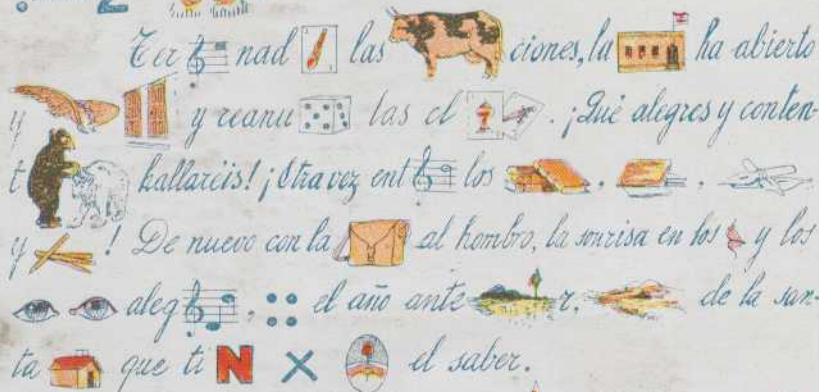 2
Ter nad las ciones, la ha abierto
y y reanu las cl . ¡Qué alegres y conten-
t hallareis! ¡Otra vez ent los , ,
y ! De nuevo con la al hombro, la sonrisa en los y los
aleg , el año ante r, de la san-
ta que ti N × el saber.